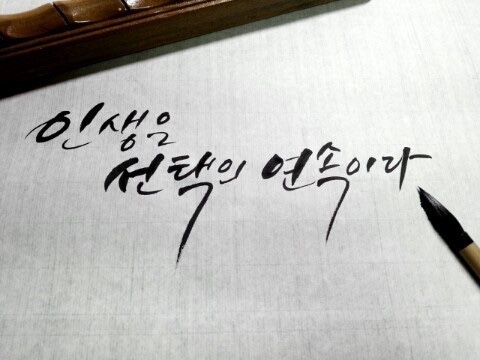 인생은
선택의 연속이라